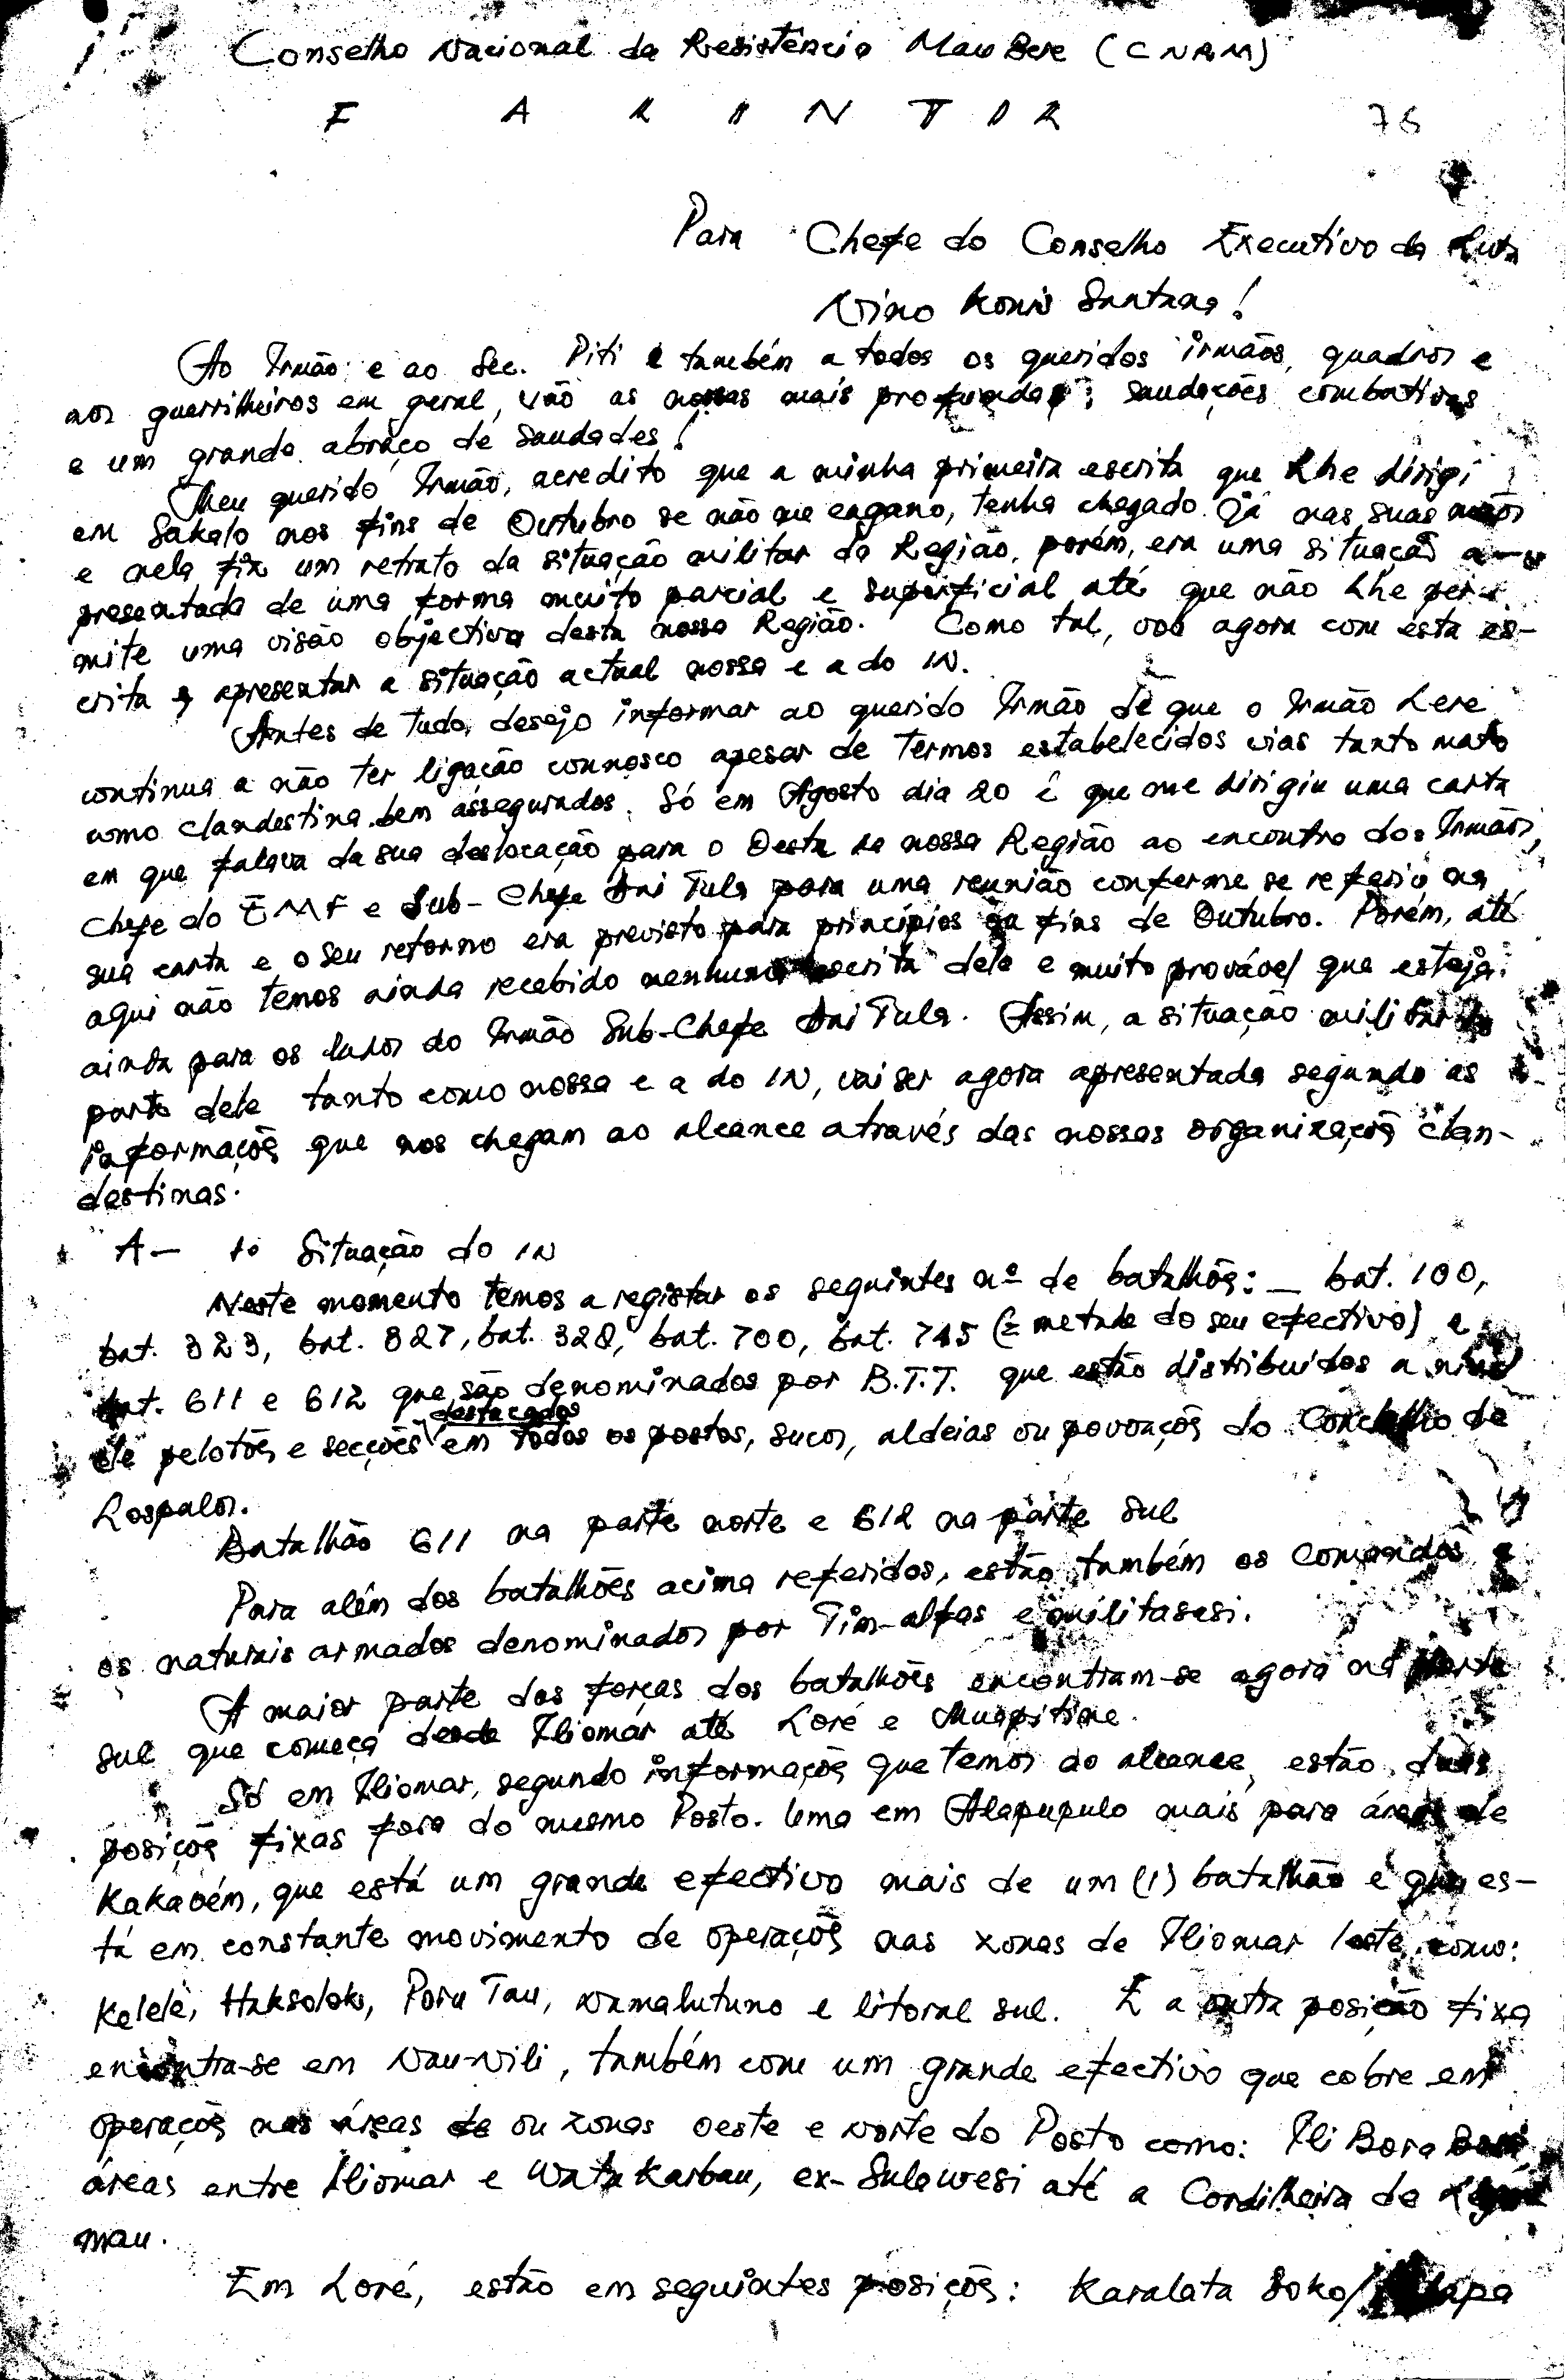 Conselho Nacional da Resistência MauBere (CNRM)
F A L I N T I L
76
Para Chefe do Conselho Executivo da Luta
Nino Konis Santana!
Ao Irmão e ao Sec. Piti e também a todos os queridos irmãos, quadros e
aos guerrilheiros em geral, vão as nossas mais profundas saudações combativas
e um grande abraço de saudades!
Meu querido Irmão, acredito que a minha primeira escrita que lhe dirigi
em Sakalo nos fins de Outubro se não me engano, tenha chegado já nas suas mãos
e nela fiz um retrato da situação militar da Região, porém, era uma situação a-
presentada de uma forma muito parcial e superficial até que não lhe per-
mite uma visão objectiva desta nossa Região. Como tal, vou agora com esta es-
crita apresentar a situação actual nossa e a do IN.
Antes de tudo, desejo informar ao querido Irmão de que o Irmão Lere
continua a não ter ligação connosco apesar de termos estabelecidos vias tanto mato
como clandestina bem assegurados. Só em Agosto dia 20 é que me dirigiu uma carta
em que falava da sua deslocação para o Oeste da nossa Região ao encontro dos Irmãos,
Chefe do EMF e Sub-Chefe Ani Tula para uma reunião conferme se referiu na
sua carta e o seu retorno era previsto para princípios ou fins de Outubro. Porém, até
aqui não temos ainda recebido nenhuma escrita dele e muito provável que esteja
ainda para os lados do Irmão Sub-Chefe Ani Tula. Assim, a situação militar da
parte dele tanto como nossa e a do IN, vai ser agora apresentada segundo as
informaçõs que nos chegam ao alcance através das nossas organizaçõs clan-
destinas.
A- 1º Situação do IN
Neste momento temos a registar os seguintes nº de batalhõs: _ bat. 100,
bat. 323, bat. 327, bat. 328, bat. 700, bat. 745 (± metade do seu efectivo) e
bat. 611 e 612 que são denominados por B.T.T. que estão distribuidos a nivel
de pelotõs e secções destacados em todos os postos, sucos, aldeias ou povoaçõs do Concelho de
Lospalos.
Batalhão 611 na parte norte e 612 na parte sul
Para além dos batalhões acima referidos, estão também os comandos e
os naturais armados denominados por Tim-alfas e militasesi.
A maior parte das forças dos batalhões encontram-se agora na parte
sul que começa desde Iliomar até Loré e Muapitine.
Só em Iliomar, segundo informaçõs que temos ao alcance, estão duas
posiçõs fixas fora do mesmo Posto. Uma em Alapupulo mais para áreas de
Kakavém, que está um grande efectivo mais de um (1) batalhão e que es-
tá em constante movimento de operaçõs nas zonas de Iliomar leste, como:
Kelele, Haksolok, Poru Tau, Namalutuno e litoral sul. E a outra posição fixa
encontra-se em Nau-Nili, também com um grande efectivo que cobre em
operaçõs nas áreas de ou zonas oeste e norte do Posto como: Ili Bora
áreas entre Iliomar e Wata Karbau, ex-Sulawesi até a Cordilheira de
mau.
Em Loré, estão em seguintes posiçõs: Karalata Soko/